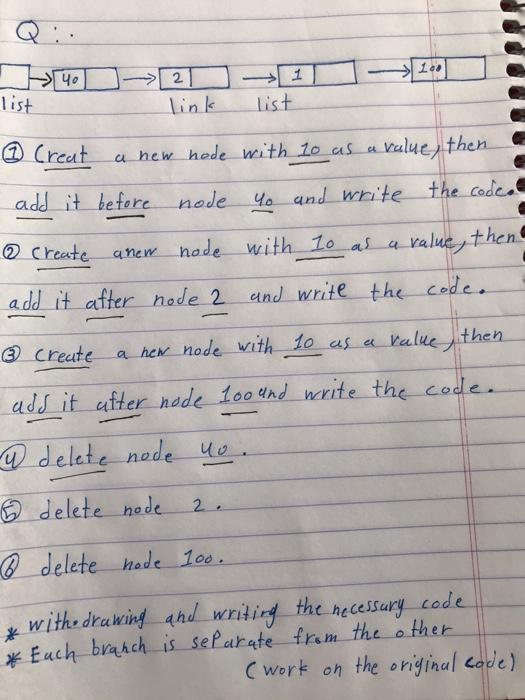 Q:..
40 2 1 100
list link list
① Creat a new node with 10 as a value, then
add it before node 40 and write the code.
② Create anew node with 10 as a value, then
add it after node 2 and write the code.
③ Create a new node with 10 as a value, then
add it after node 100 and write the code.
④ delete node 40.
⑤ delete node 2.
⑥ delete node 100.
* with drawing and writing the necessary code
* Each branch is separate from the other
(work on the original code)